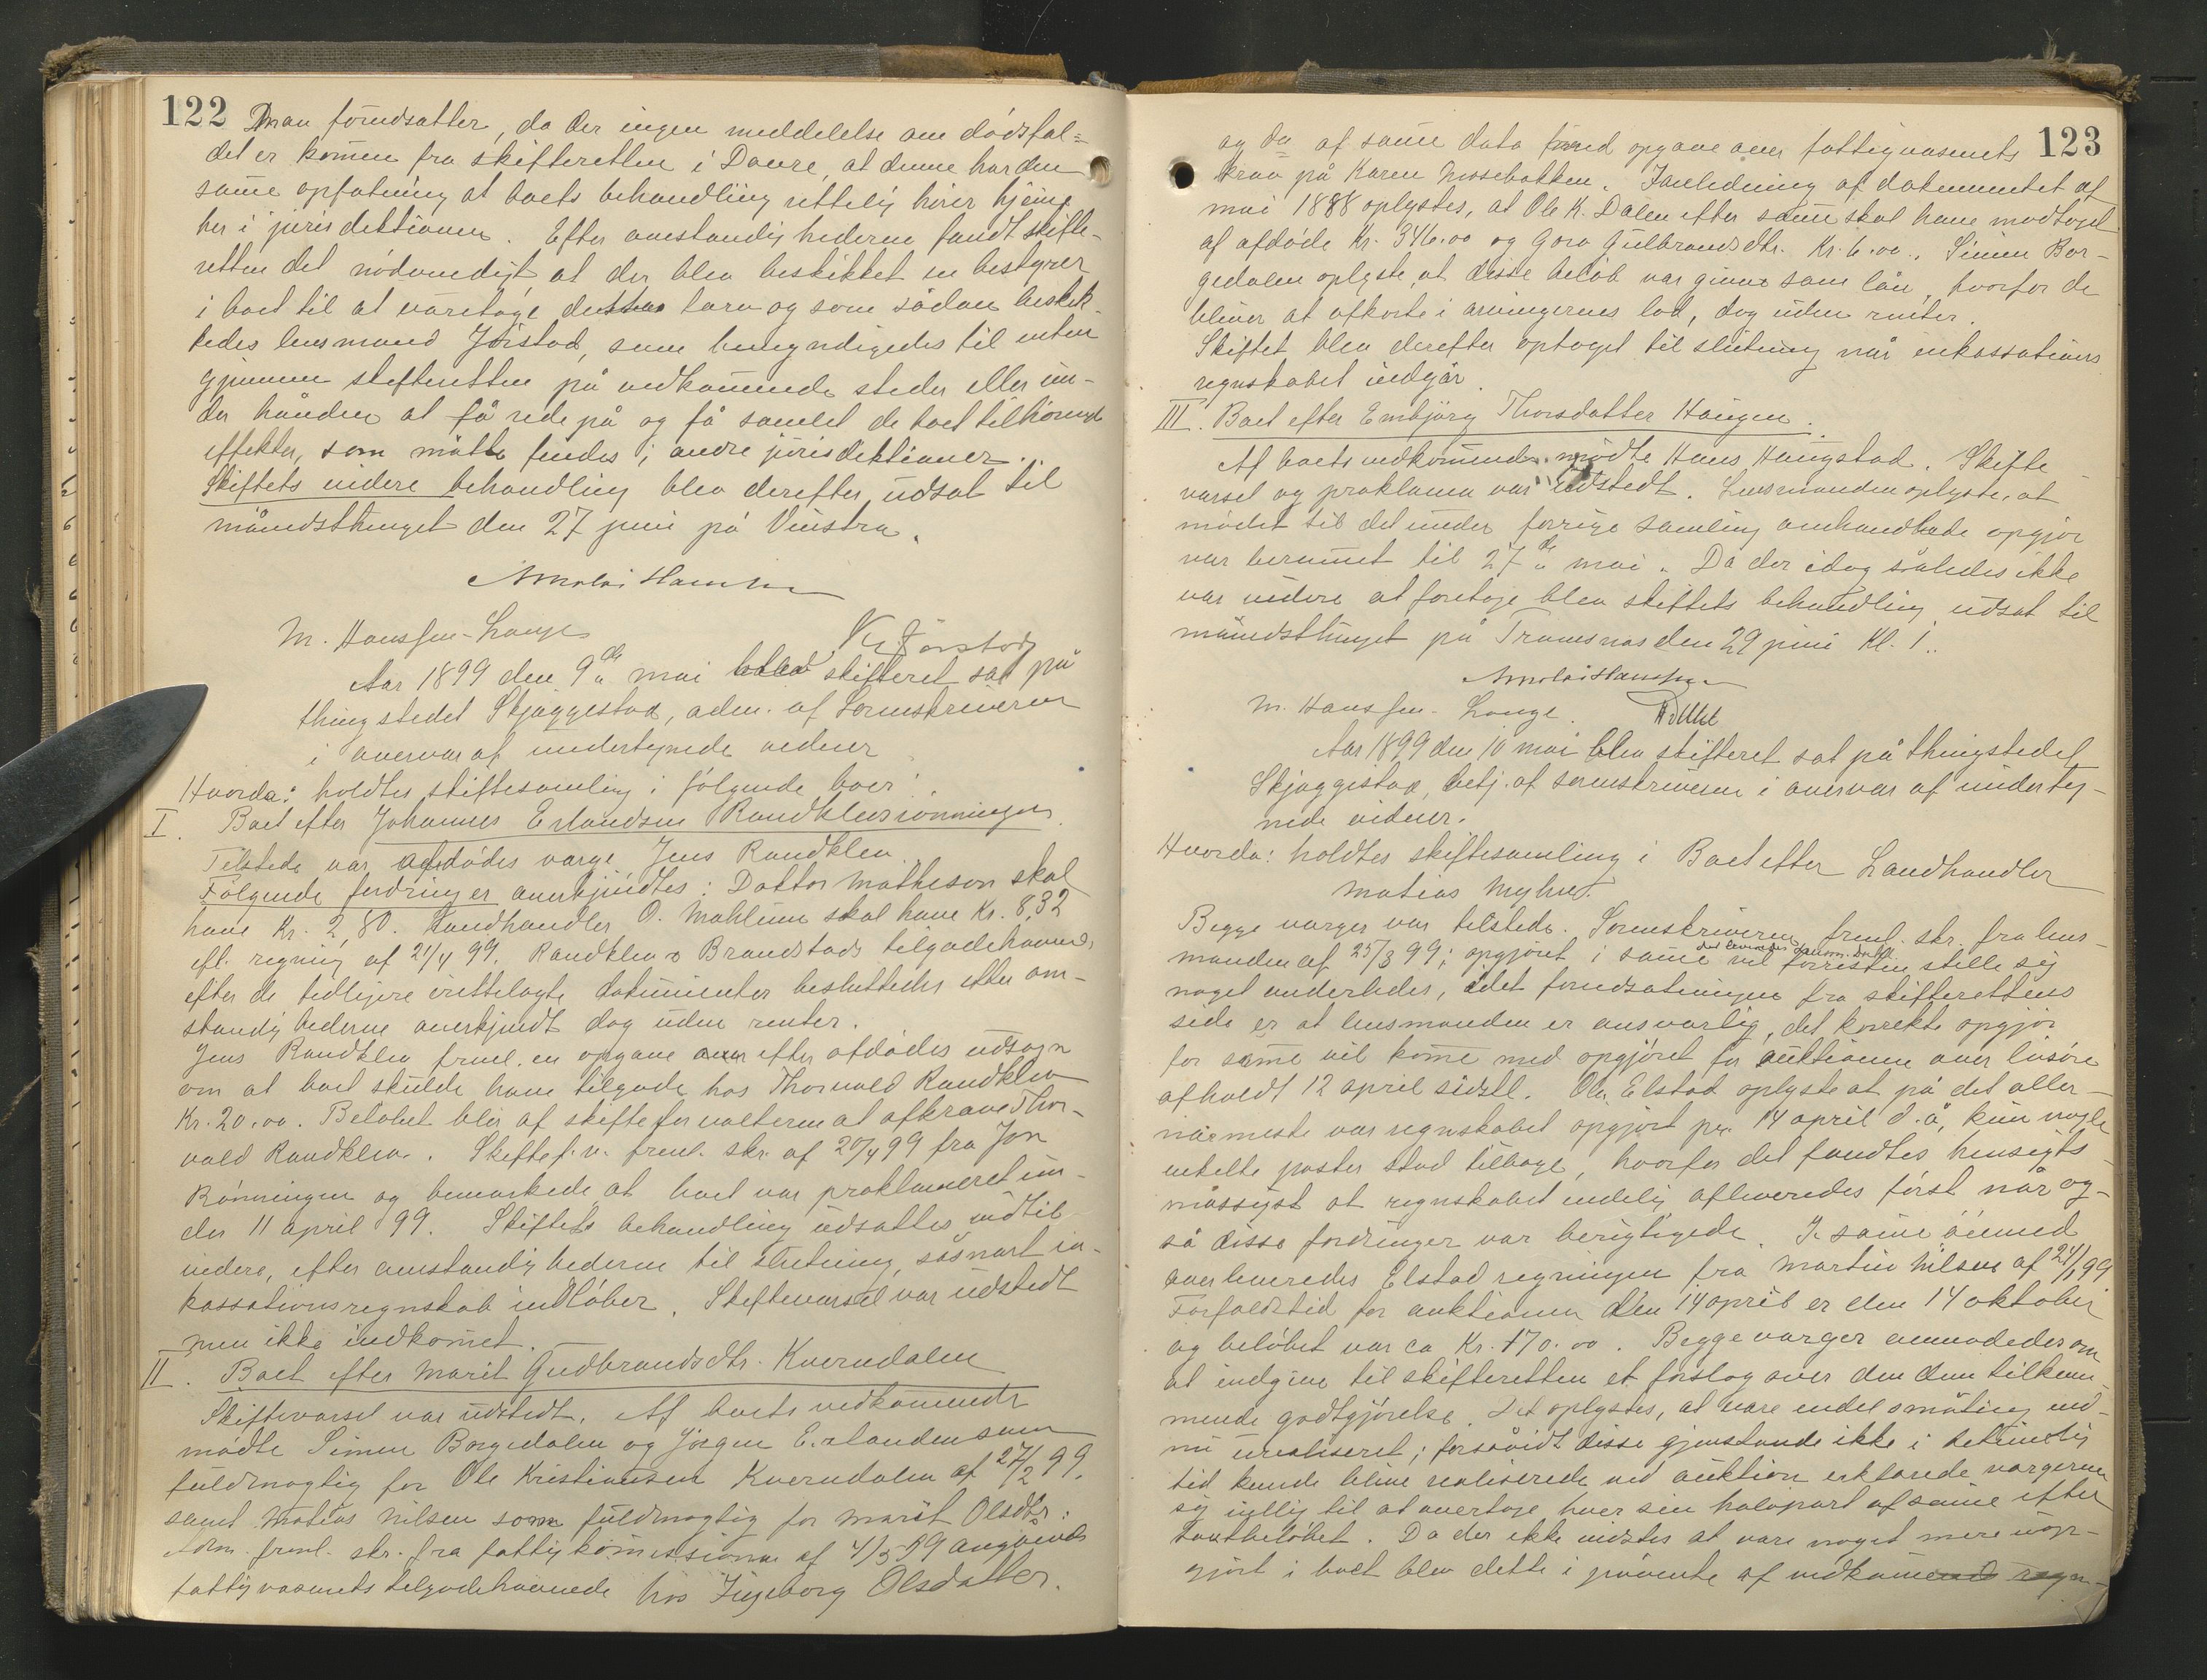 122
Man forudsatter, da der ingen meddelelse om dødsfal-
det er kommen fra skifteretten i Dovre, at denne har den
samme opfatning at boets behandling rettelig hører hjem
her i jurisdiktionen. Efter omstændighederne fandt skifte-
retten det nødvendigt, at der blev beskikket en bestyrer
i boet til at varetage dettes tarv og som sådan beskik-
kedes lensmand Jörstad, som bemyndigedes til enten
gjennem skifteretten på vedkommende steder eller un-
der hånden at få rede på og få samlet de boet tilhørende
effekter, som måtte findes i andre jurisdiktioner.
Skiftets videre behandling blev derefter udsat til
månedsthinget den 27 juni på Vinstra.
Nikolai Hansen
M. Hanssen-Lange
Jörstad
Aar 1899 den 9de mai blev skifteret sat på
thingstedet Skjæggestad, adm. af Sorenskriveren
i overvær af undertegnede vidner
Hvorda: holdtes skiftesamling i følgende boer:
I. Boet efter Johannes Erlandsen Randklevrönningen
Tilstede var afdødes værge Jens Randklev
Følgende fordringer anerkjendtes: Doktor Matheson skal
have Kr. 2,80. Landhandler O. Mæhlum skal have Kr. 8,32
efl. regning af 21/4 99. Randklev & Brandstads tilgodehavende
efter de tidligere irettelagte dokumenter besluttedes efter om-
stændighederne anerkjendt dog uden renter.
Jens Randklev freml. en opgave over efter afdødes udsagn
om at boet skulde have tilgode hos Thorvald Randklev
Kr. 20.00. Beløbet blir af skifteforvalteren at afkræve Thor-
vald Randklev. Skiftef.v. freml. skr. af 20/4 99 fra Jon
Rönningen og bemærkede at boet var proklameret un-
der 11 april 99. Skiftets behandling udsattes indtil
videre, efter omstændighederne til slutning, såsnart in-
kassationsregnskab indløber. Skiftevarsel var udstedt
men ikke indkommet.
II. Boet efter Marit Gudbrandsdtr. Kverndalen
Skiftevarsel var udstedt. Af boets vedkommende
mødte Simen Borgedalen og Jörgen Erlandsen som
fuldmægtig for Ole Kristiansen Kverndalen af 27/2 99.
samt Matias Nilsen som fuldmægtig for Marit Olsdtr:
Adm. freml. skr. fra fattigkommissionen af 4/5 99 angående
fattigvæsenets tilgodehavende hos Ingeborg Olsdatter.
123
og do af samme dato med opgave over fattigvæsenets
krav på Karen Mosebakken. I anledning af dokumentet af
mai 1888 oplystes, at Ole K. Dalen efter samme skal have modtaget
af afdøde Kr. 346.00 og Goro Gulbrandsdtr. Kr. 6.00. Simen Bor-
gedalen oplyste, at disse beløb var givne som lån, hvorfor de
bliver at afkorte i arvingernes lod, dog uden renter.
Skiftet blev derefter optaget til slutning når inkassations
regnskabet indgår.
III. Boet efter Embjörg Thorsdatter Haugen.
Af boets vedkommende mødte Hans Haugstad. Skifte
varsel og proklama var udstedt. Lensmanden oplyste, at
mødet til det under forrige samling omhandlede opgjör
var berammet til 27de mai. Da der idag således ikke
var videre at foretage blev skiftets behandling udsat til
månedsthinget på Tromsnæs den 29 juni Kl. 1.
Nikolai Hanssen
M. Hanssen-Lange.
Aar 1899 den 10 mai blev skifteret sat på thingstedet
Skjæggestad, betj. af sorenskriveren i overvær af underteg-
nede vidner.
Hvorda: holdtes skiftesamling i Boet efter Landhandler
Matias Myhre.
Begge værger var tilstede. Sorenskriveren freml. skr. fra lens-
manden af 25/3 99; opgjöret i samme vil forresten stille sig
noget anderledes, idet forudsætningen fra skifterettens
side er at lensmanden er ansvarlig, det korrekte opgjör
for samme vil komme med opgjöret for auktionen over lösöre
afholdt 12 april sidstl. Ole Elstad oplyste at på det aller-
nærmeste var regnskabet opgjört pr. 14 april d.å, kun nogle
enkelte poster stod tilbage, hvorfor det fandtes hensigts-
mæssigst at regnskabet endelig afleveredes først når og-
så disse fordringer var berigtigede. I samme øiemed
overleveredes Elstad regningen fra Martin Nilsen af 24/1 99
Forfaldstid for auktionen den 14 april er den 14 oktober
og beløbet var ca Kr. 170.00. Begge værger anmodedes om
at indgive til skifteretten et forslag over den dem tilkom-
mende godtgjörelse. Det oplystes, at være endel småting end-
nu urealiseret; forsåvidt disse gjenstande ikke i betimelig
tid kunde blive realiserede ved auktion erklærede værgerne
sig villig til at overtage hver sin halvpart af samme efter
taxtbeløbet. Da der ikke vidstes at være noget mere uop-
gjört i boet blev dette i påvente af vedkommende regn-